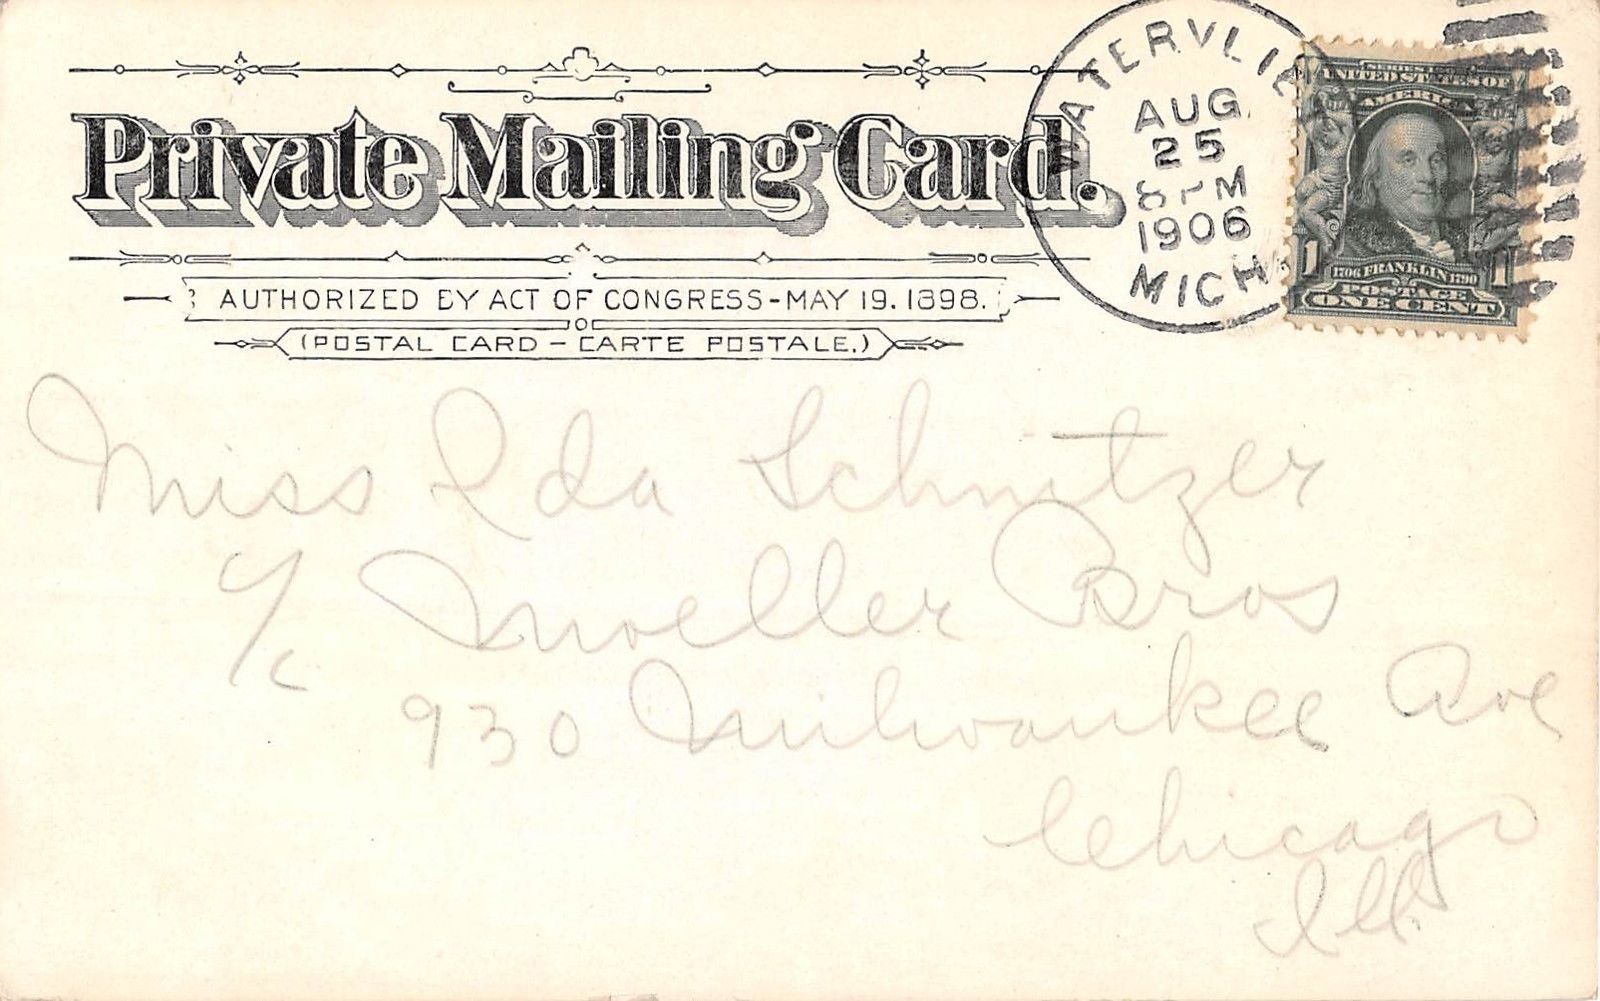 Private Mailing Card.
AUTHORIZED BY ACT OF CONGRESS-MAY 19. 1898.
(POSTAL CARD - CARTE POSTALE.)
WATERVLIET
AUG
25
PM
1906
MICH
SERIES
UNITED STATES OF
AMERICA
1706 FRANKLIN 1790
1 1
POSTAGE
ONE CENT
Miss Ida Schnitzer
c/c Moeller Bros
930 Milwaukee Ave
Chicago
Ill.